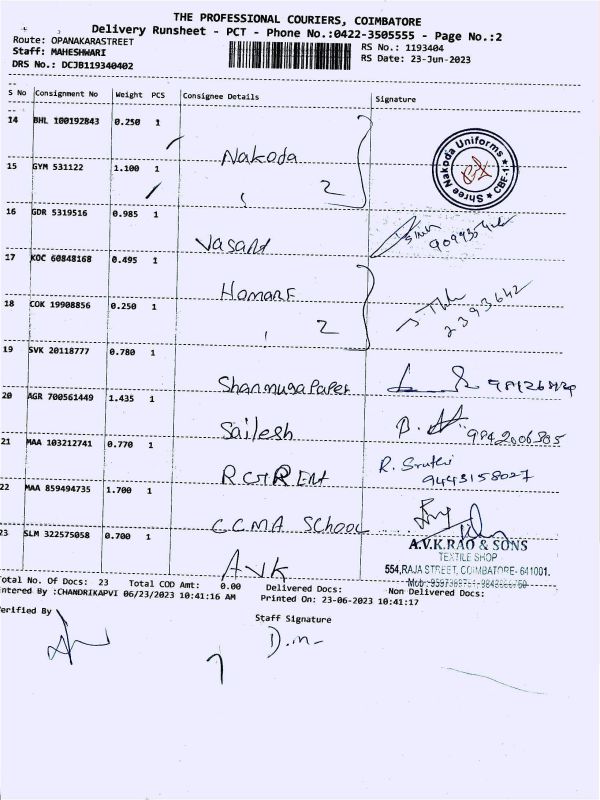 THE PROFESSIONAL COURIERS, COIMBATORE
Delivery Runsheet - PCT - Phone No.:0422-3505555 - Page No.:2
Route: OPANAKARASTREET
RS No.: 1193404
Staff: MAHESHWARI
RS Date: 23-Jun-2023
DRS No.: DCJB119340402
S No Consignment No Weight PCS Consignee Details Signature
14 BHL 100192843 0.250 1
Nakoda
Shree Nakoda Uniforms CBE-1
15 GYM 531122 1.100 1
2
16 GDR 5319516 0.985 1
Vasand
17 KOC 60848168 0.495 1
18 COK 19908856 0.250 1
2
2393642
19 SVK 20118777 0.780 1
Shanmuga Paper
20 AGR 700561449 1.435 1
Sailesh
21 MAA 103212741 0.770 1
R. Sruthi
9443158027
22 MAA 859494735 1.700 1
C.C.M.A SCHOOL
23 SLM 322575058 0.700 1
AVK
A.V.K.RAO & SONS
TEXTILE SHOP
554,RAJA STREET, COIMBATORE- 641001.
Total No. Of Docs: 23 Total COD Amt: 0.00 Delivered Docs: Non Delivered Docs:
Entered By :CHANDRIKAPVI 06/23/2023 10:41:16 AM Printed On: 23-06-2023 10:41:17
Verified By
Staff Signature
D.m-